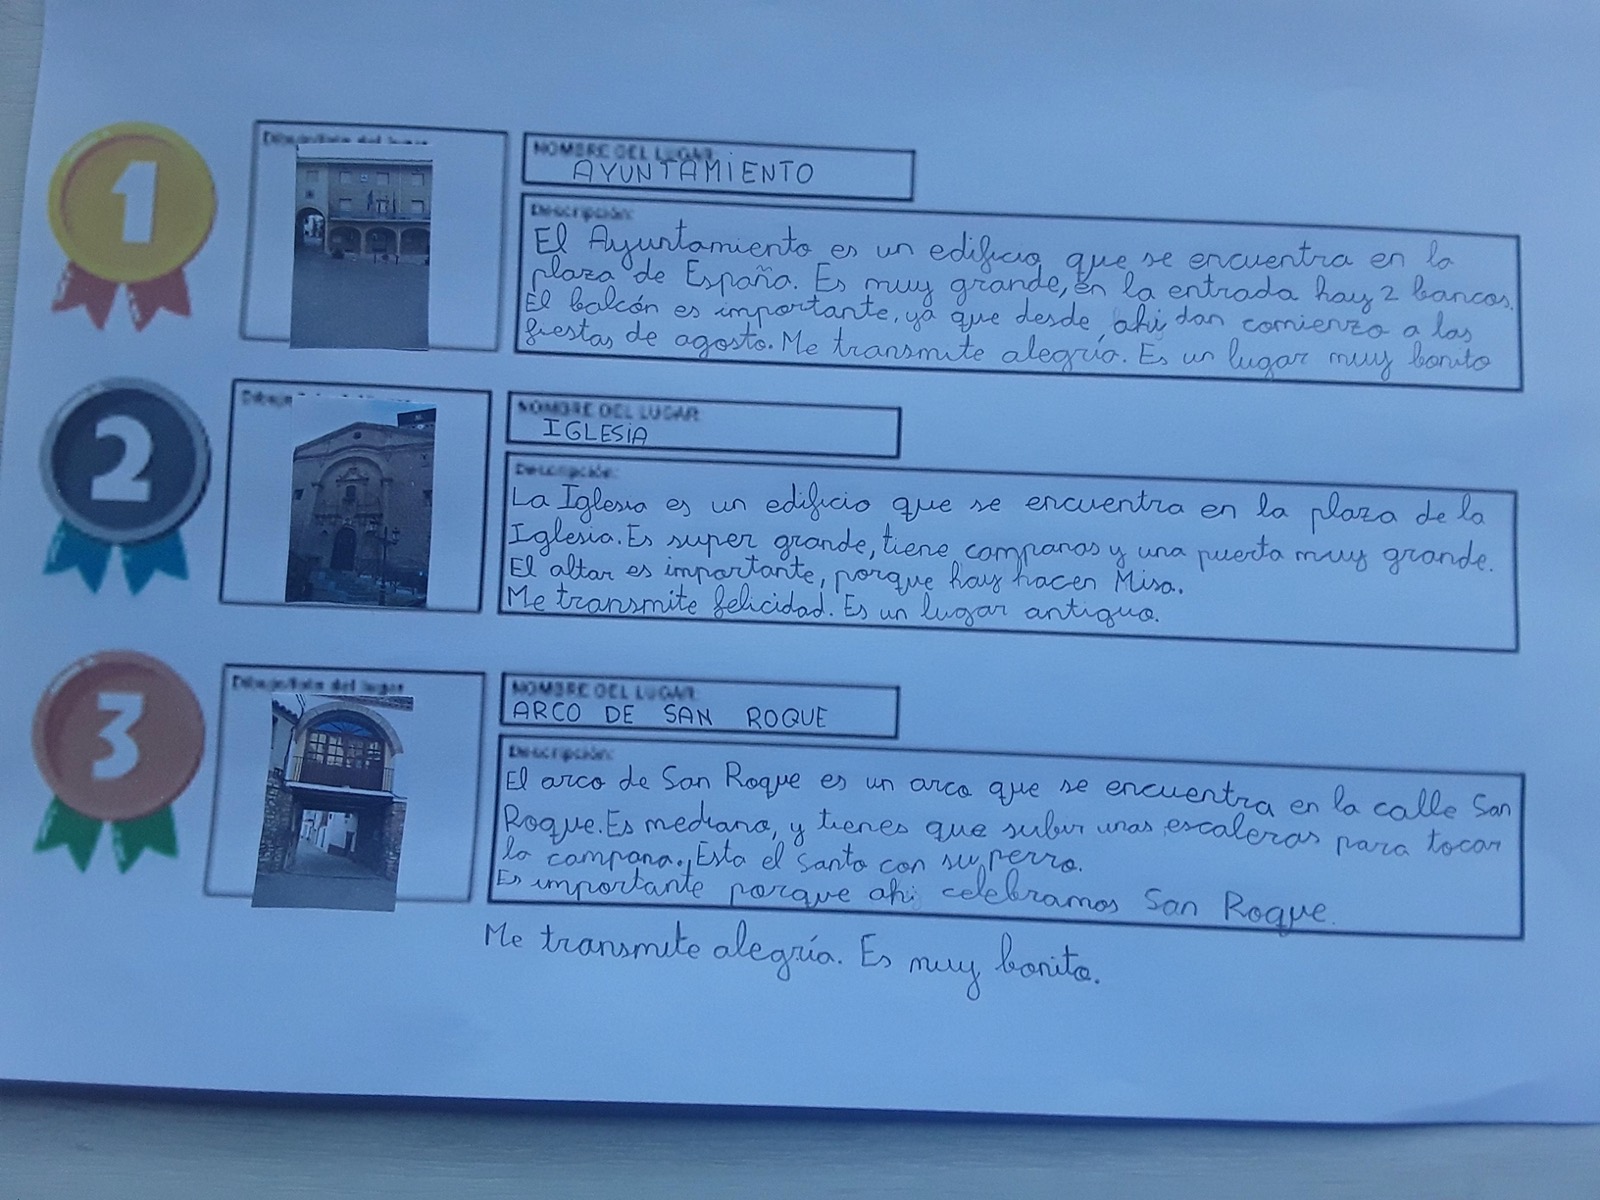 1
Dibujo/foto del lugar
NOMBRE DEL LUGAR:
AYUNTAMIENTO
Descripción:
El Ayuntamiento es un edificio que se encuentra en la
plaza de España. Es muy grande, en la entrada hay 2 bancos.
El balcón es importante, ya que desde ahi dan comienzo a las
fiestas de agosto. Me transmite alegría. Es un lugar muy bonito
2
NOMBRE DEL LUGAR:
IGLESIA
Descripción:
La Iglesia es un edificio que se encuentra en la plaza de la
Iglesia. Es super grande, tiene campanas y una puerta muy grande.
El altar es importante, porque hay hacen Misa.
Me transmite felicidad. Es un lugar antiguo.
3
Dibujo/foto del lugar
NOMBRE DEL LUGAR:
ARCO DE SAN ROQUE
Descripción:
El arco de San Roque es un arco que se encuentra en la calle San
Roque. Es mediano, y tienes que subir unas escaleras para tocar
la campana. Esta el Santo con su perro.
Es importante porque ahi celebramos San Roque.
Me transmite alegría. Es muy bonito.